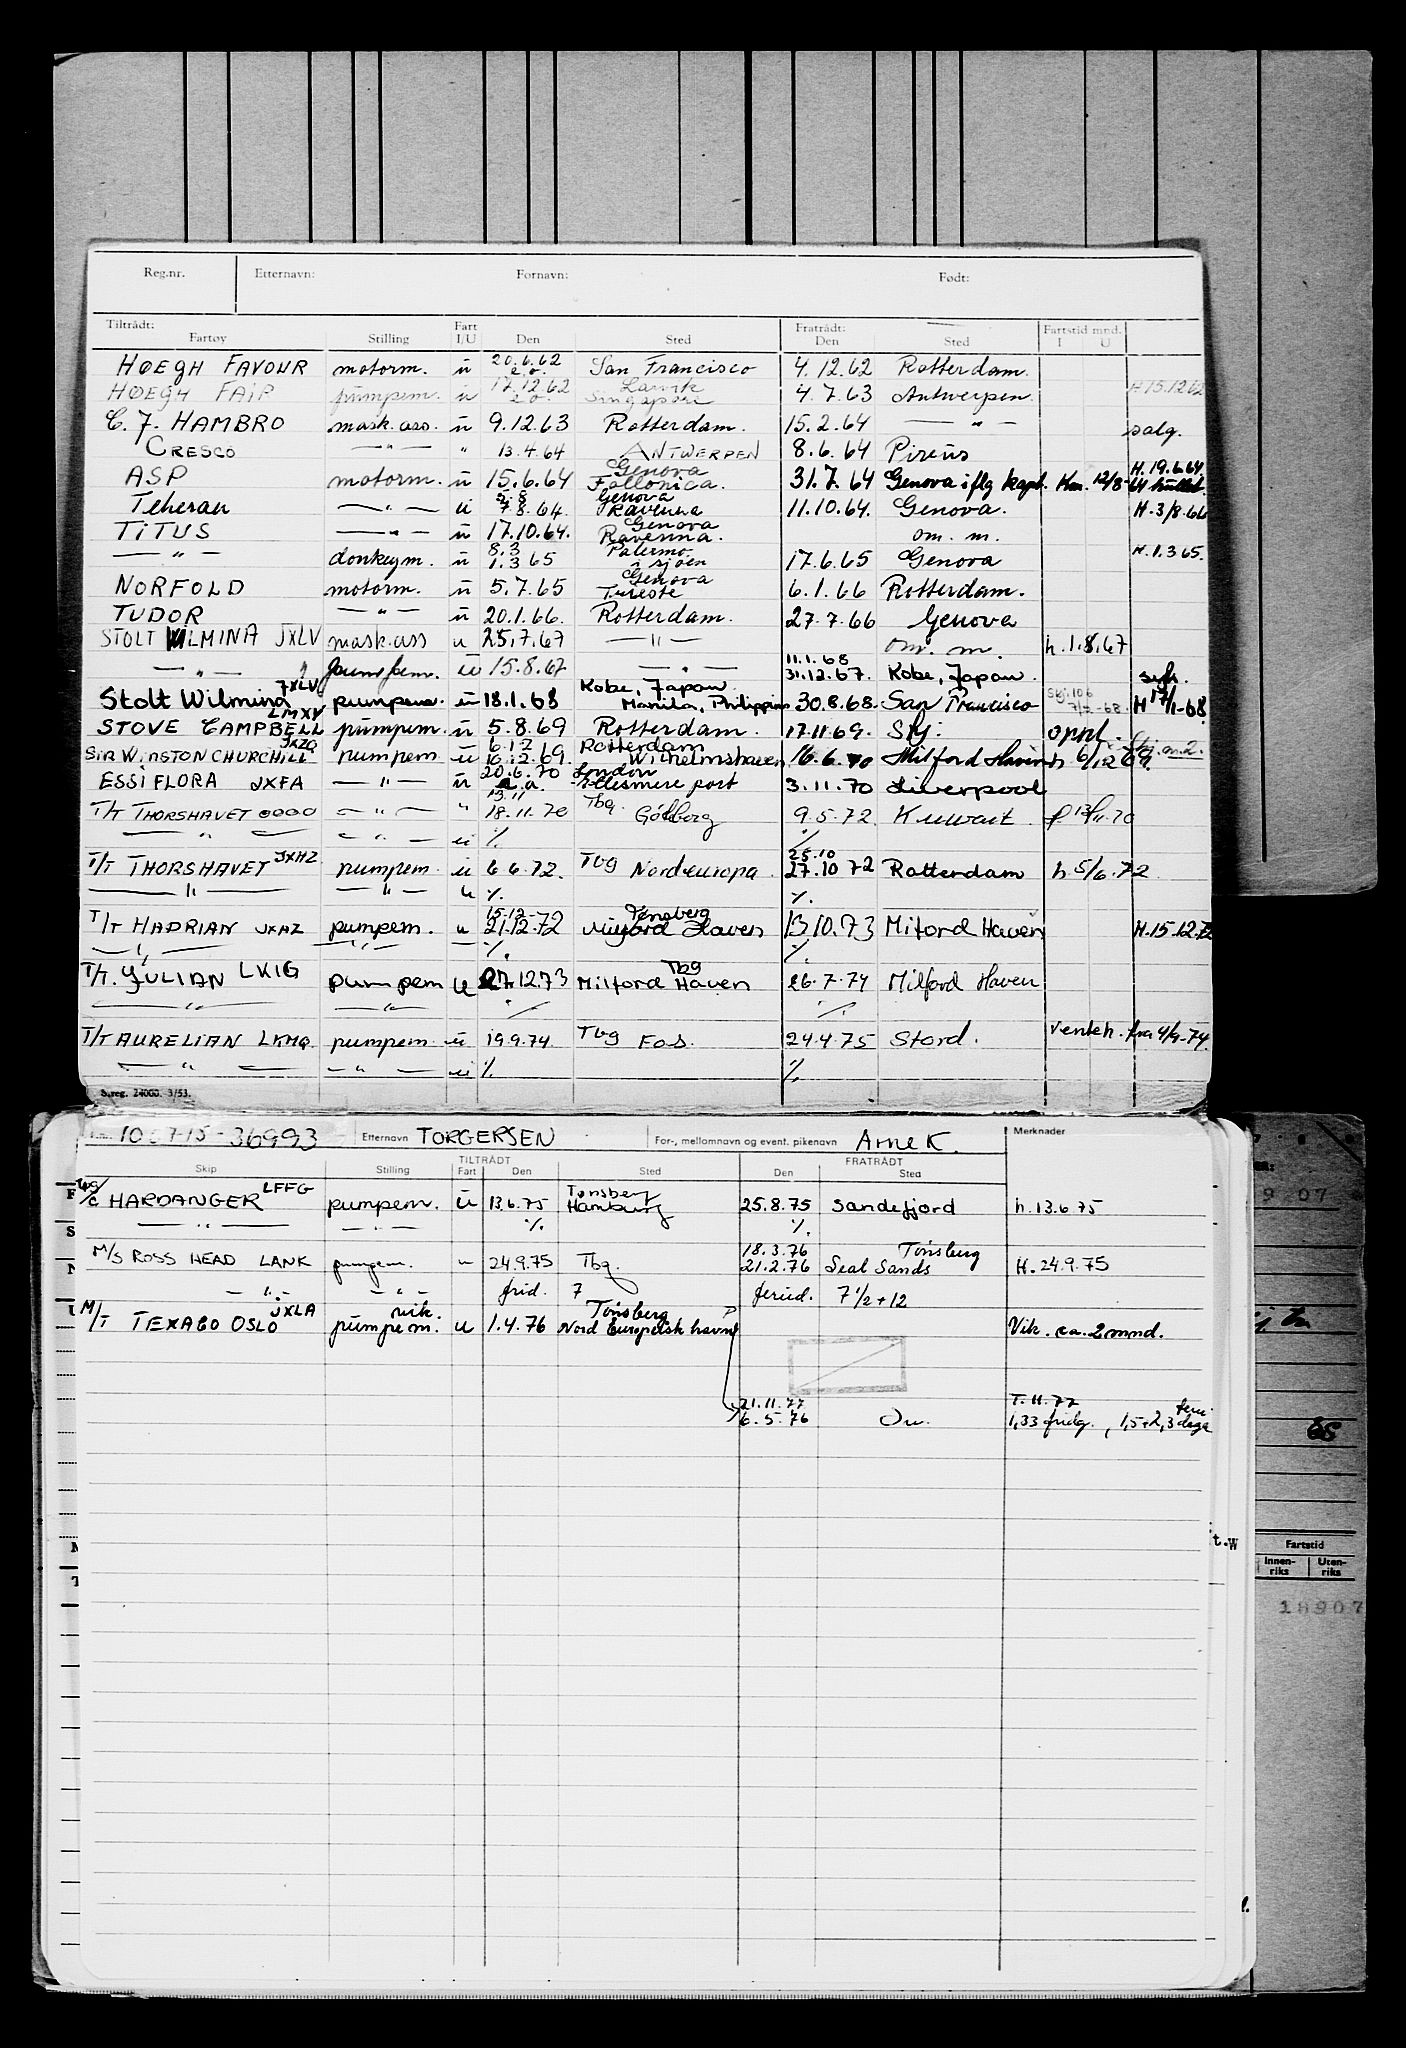 Reg.nr. Etternavn: Fornavn: Født:
Tiltrådt: Fart Fratrådt: Fartstid mnd.
Fartøy Stilling I/U Den Sted Den Sted I U
HØEGH FAVOUR motorm. u 20.6.62 e.o. San Francisco 4.12.62 Rotterdam.
HØEGH FAIR pumpem. u 17.12.62 e.o. Larvik Singapore 4.7.63 Antwerpen. H.15.12.62
C. J. HAMBRO mask.ass. u 9.12.63 Rotterdam. 15.2.64 — " — salg.
CRESCO — " — " 13.4.64 ANTWERPEN 8.6.64 Pireus
ASP motorm. u 15.6.64 Genova Follonica. 31.7.64 Genova iflg kapt. Kn. 12/8-64 H.19.6.64
Teheran — " — u 5.8 7.8.64. Genova Ravenna 11.10.64. Genova. H.3/8.64
TITUS — " — u 17.10.64. Genova Ravenna. om. m.
— " — donkeym. u 8.3 1.3.65 Palermo. i sjøen 17.6.65 Genova H.1.3.65.
NORFOLD motorm. u 5.7.65 Genova Trieste 6.1.66 Rotterdam.
TUDOR — " — u 20.1.66. Rotterdam. 27.7.66 Genova
STOLT WILMINA JXLV mask.ass u 25.7.67 — " — om. m. h.1.8.67
— " — " pumpem. u 15.8.67 — " — 11.1.68 31.12.67. Kobe, Japan. syk.
Stolt Wilmina JXLV pumpem. u 18.1.68 Kobe, Japan Manila, Philippines 30.8.68. San Francisco H 17/1-68
STOVE CAMPBELL LMXV pumpem. u 5.8.69 Rotterdam. 17.11.69. Skj. oppl.
SIR WINSTON CHURCHILL JXZQ pumpem u 6.12 16.12.69. Rotterdam Wilhelmshaven 16.6.70 Milford Haven h 6/12 69.
ESSI FLORA JXFA — " — u 20.6.70 e.a. London Ellesmere port 3.11.70 Liverpool
T/T THORSHAVET OOOO — " — " 13.11 18.11.70 Tbg. Gøtborg 9.5.72. Kuwait f 13/11.70
— " — — " — u ٪. ٪.
T/T THORSHAVET JXHZ pumpem. u 6.6.72. Tbg Nordeuropa. 25.10 27.10 72 Rotterdam h. 5/6.72
— " — — " — u ٪. ٪.
T/T HADRIAN JXAZ pumpem. u 15.12- 21.12.72 Tønsberg Milford Haven 13.10.73 Milford Haven H.15.12.72
— " — — " — ٪. ٪.
T/T. JULIAN LKIG pumpem u 27.12.73 Tbg Milford Haven 26.7.74 Milford Haven
— " — — " — ٪ ٪.
T/T AURELIAN LKMQ. pumpem. u 19.9.74. Tbg Fos. 24.4.75 Stord. Venteh. fra 4/9-74.
— " — — " — u ٪. ٪.
S.reg. 24000. 3/53.
10 07-15-36993 Etternavn TORGERSEN For-, mellomnavn og event. pikenavn Arne K. Merknader
TILTRÅDT FRATRÅDT
Skip Stilling Fart Den Sted Den Sted
HARDANGER LFFG pumpem. u 13.6.75 Tønsberg Hamburg 25.8.75 Sandefjord h.13.6.75
— " — — " — ٪. ٪.
M/S ROSS HEAD LANK pumpem. u 24.9.75 Tbg. 18.3.76 21.2.76 Tønsberg Seal Sands H.24.9.75
— " — — " — frid. 7 feried. 7 1/2 + 12
M/T TEXACO OSLO JXLA vik. pumpem. u 1.4.76 Tønsberg Nord Europeisk havn Vik. ca. 2 mnd.
21.11.77 T.11.77
6.5.76 1,33 fridg., 1,5+2,3 ferie dage
t.w
Fartstid
Innen-riks Uten-riks
18907